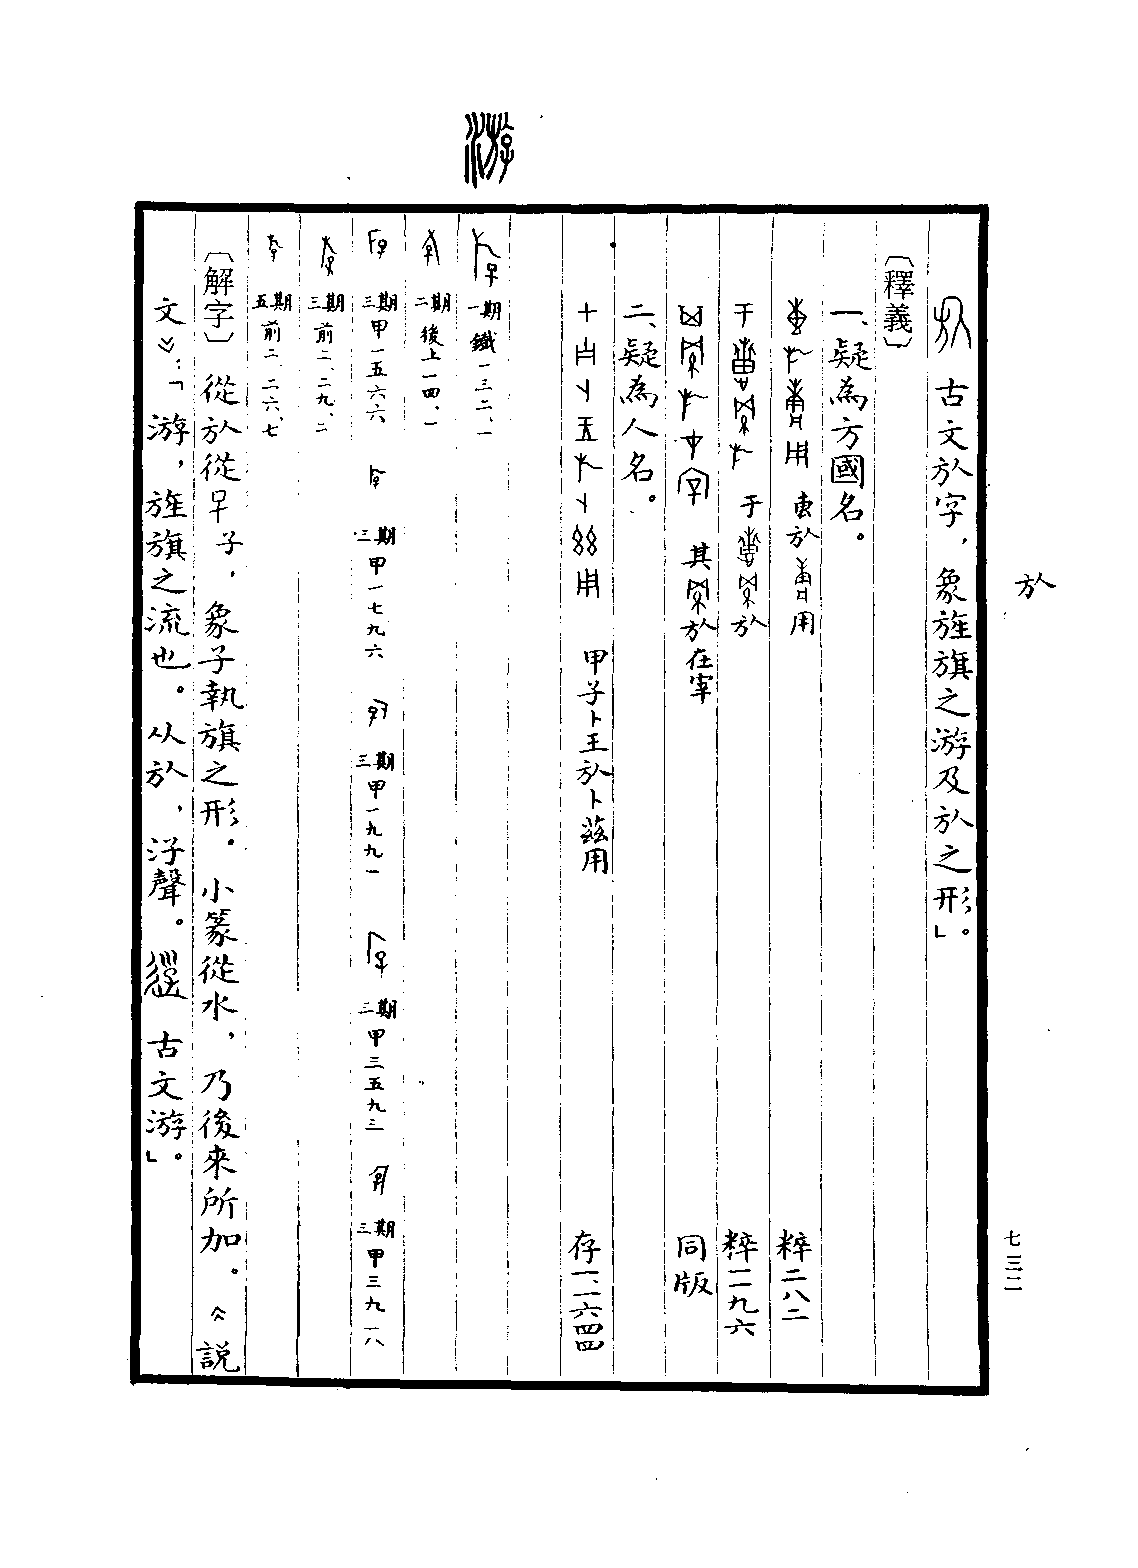 㫃
七三二
古文㫃字，象旌旗之游及㫃之形」。
〔釋義〕
一、疑為方國名。
叀㫃用 粹二八二
于㫃 粹一一九六
其㫃在宰 同版
二、疑為人名。
甲子卜王㫃卜茲用 存一、一六四四
游
一期 鐵一三二、一
二期 後上一四、一
三期 甲一五六六
三期 甲一七九六
三期 甲一九九一
三期 甲三五九三
三期 甲三九一八
三期 前二、二九、二
五期 前二、二六、七
〔解字〕從㫃從子，象子執旗之形。小篆從水，乃後來所加。《說
文》：「游，旌旗之流也。从㫃，汓聲。古文游」。